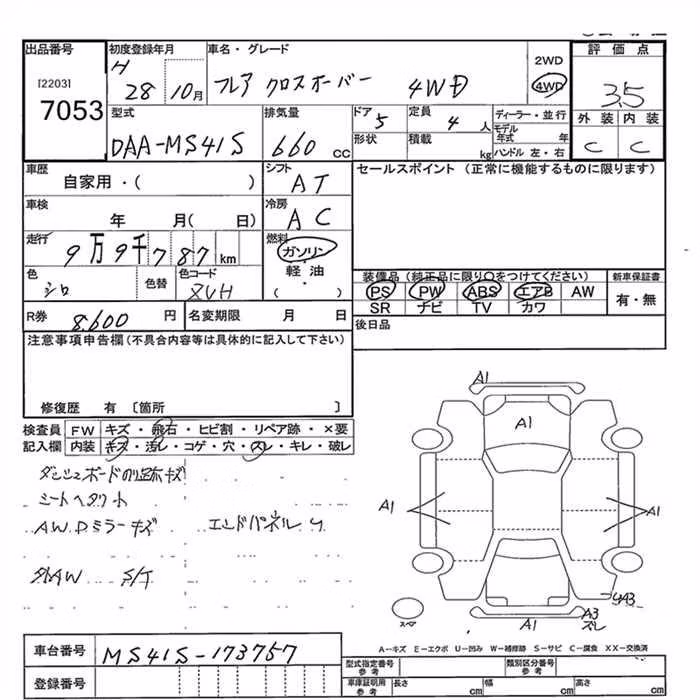 出品番号 初度登録年月 車名・グレード 2WD 評価点
[2203] H 28 10月 フレア クロスオーバー 4WD 4WD 3.5
7053
型式 排気量 ドア 定員 ディーラー・並行 外装 内装
DAA-MS41S 660 CC 5 4人 モデル年式 年 C C
形状 積載 kg ハンドル 左・右
車歴 シフト セールスポイント (正常に機能するものに限ります)
自家用・( ) AT
車検 冷房
年 月( 日) AC
走行 燃料
9万9千787km ガソリン・軽油・( )
色 色替 色コード 装備品 (純正品に限り○をつけてください) 新車保証書
シロ ZVH PS PW ABS エアB AW 有・無
SR ナビ TV カワ
R券 8,600 円 名変期限 月 日 後日品
注意事項申告欄(不具合内容等は具体的に記入して下さい)
修復歴 有 〔箇所 〕
検査員 FW キズ・飛石・ヒビ割・リペア跡・×要
記入欄 内装 キズ・汚レ・コゲ・穴・スレ・キレ・破レ
ダッシュボード キズ
シートヘタリ 小
A.W.Dミラーキズ エンドパネル
外AW S/T
A1
A1
A1 A1
4A3
A1 A3
スペア ズレ
A-キズ E-エクボ U-凹み W-補修跡 S-サビ C-腐食 XX-交換済
車台番号 MS41S-173757
登録番号
型式指定番号 参考 類別区分番号 参考
車庫証明用 参考 長さ cm 幅 cm 高さ cm